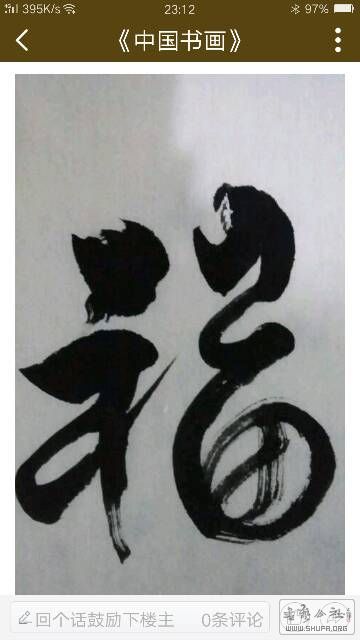 395K/s 23:12 97%
《中国书画》
福
回个话鼓励下楼主 0条评论
WWW.SHUFA.ORG